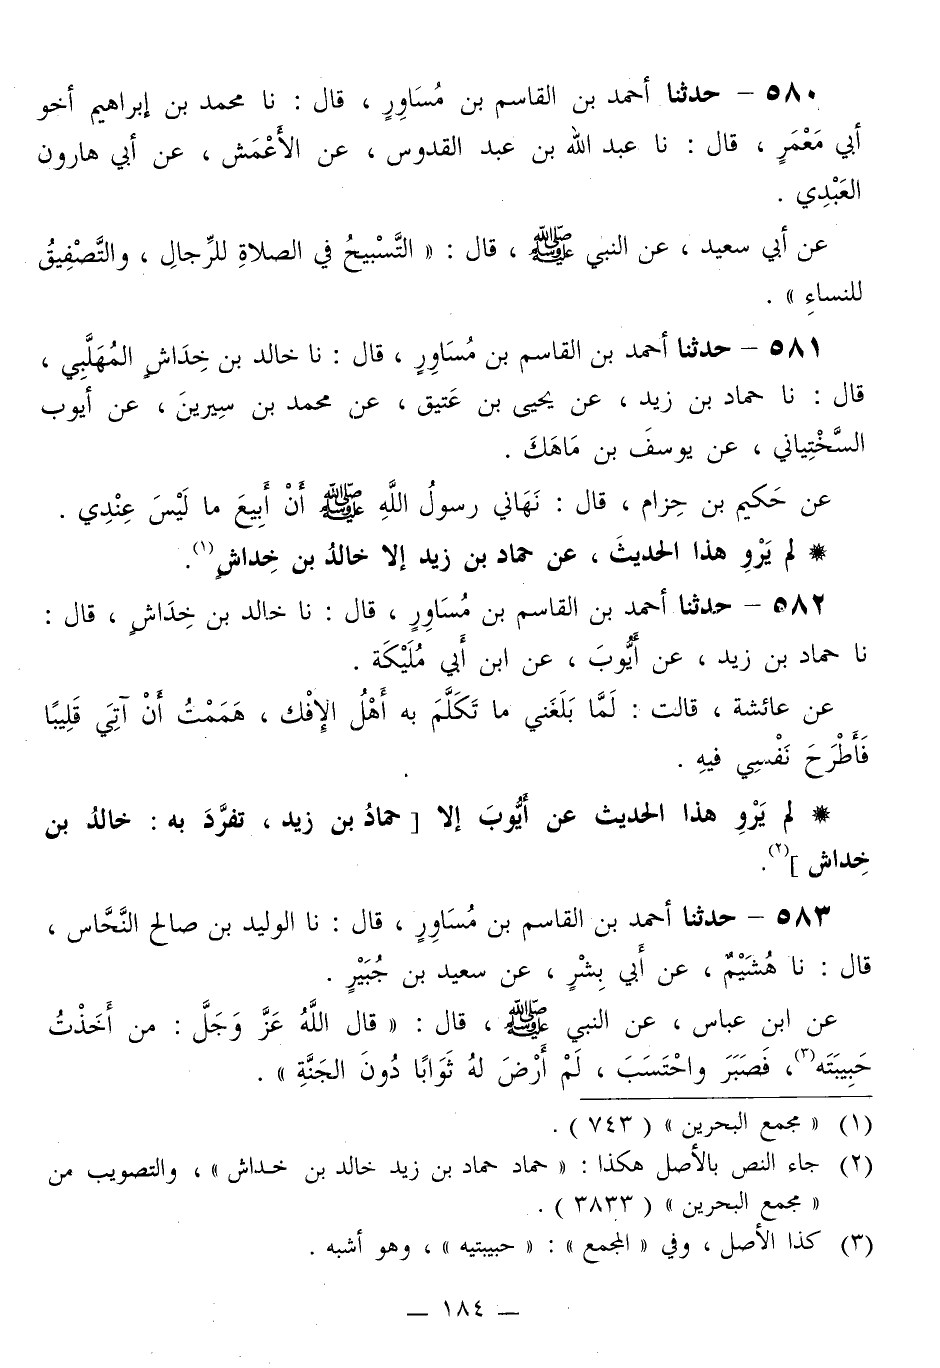 ٥٨٠ – حدثنا أحمد بن القاسم بن مُسَاوِرٍ ، قال : نا محمد بن إبراهيم أخو
أبي مَعْمَرٍ ، قال : نا عبد الله بن عبد القدوس ، عن الأَعْمَش ، عن أبي هارون
العَبْدِي .
عن أبي سعيد ، عن النبي ﷺ ، قال : « التَّسْبِيحُ في الصلاةِ للرِّجالِ ، والتَّصْفِيقُ
للنساءِ » .
٥٨١ – حدثنا أحمد بن القاسم بن مُسَاوِرٍ ، قال : نا خالد بن خِدَاشٍ المُهَلَّبِي ،
قال : نا حماد بن زيد ، عن يحيى بن عَتِيق ، عن محمد بن سِيرِينَ ، عن أيوب
السَّخْتِياني ، عن يوسفَ بن مَاهَكَ .
عن حَكيم بن حِزام ، قال : نَهَاني رسولُ اللَّهِ ﷺ أَنْ أَبِيعَ ما لَيْسَ عِنْدِي .
* لم يَرْوِ هذا الحديثَ ، عن حماد بن زيد إلا خالدُ بن خِداشٍ(١).
٥٨٢ – حدثنا أحمد بن القاسم بن مُسَاوِرٍ ، قال : نا خالد بن خِدَاشٍ ، قال :
نا حماد بن زيد ، عن أَيُّوبَ ، عن ابن أَبي مُلَيْكَة .
عن عائشة ، قالت : لَمَّا بَلَغَني ما تَكَلَّمَ به أَهْلُ الإِفْك ، هَمَمْتُ أَنْ آتِيَ قَلِيبًا
فَأَطْرَحَ نَفْسِي فيهِ .
* لم يَرْوِ هذا الحديث عن أَيُّوبَ إلا [ حمادُ بن زيد ، تفرَّدَ به : خالدُ بن
خِداش ](٢).
٥٨٣ – حدثنا أحمد بن القاسم بن مُسَاوِرٍ ، قال : نا الوليد بن صالح النَّحَّاس ،
قال : نا هُشَيْمٌ ، عن أَبي بِشْرٍ ، عن سعيد بن جُبَيْرٍ .
عن ابن عباس ، عن النبي ﷺ ، قال : « قال اللَّهُ عَزَّ وَجَلَّ : من أَخَذْتُ
حَبِيبَتَه(٣)، فَصَبَرَ واحْتَسَبَ ، لَمْ أَرْضَ لهُ ثَوَابًا دُونَ الجَنَّةِ » .
(١) « مجمع البحرين » ( ٧٤٣ ) .
(٢) جاء النص بالأصل هكذا : « حماد حماد بن زيد خالد بن خداش » ، والتصويب من
« مجمع البحرين » ( ٣٨٣٣ ) .
(٣) كذا الأصل ، وفي « المجمع » : « حبيبتيه » ، وهو أشبه .
– ١٨٤ –